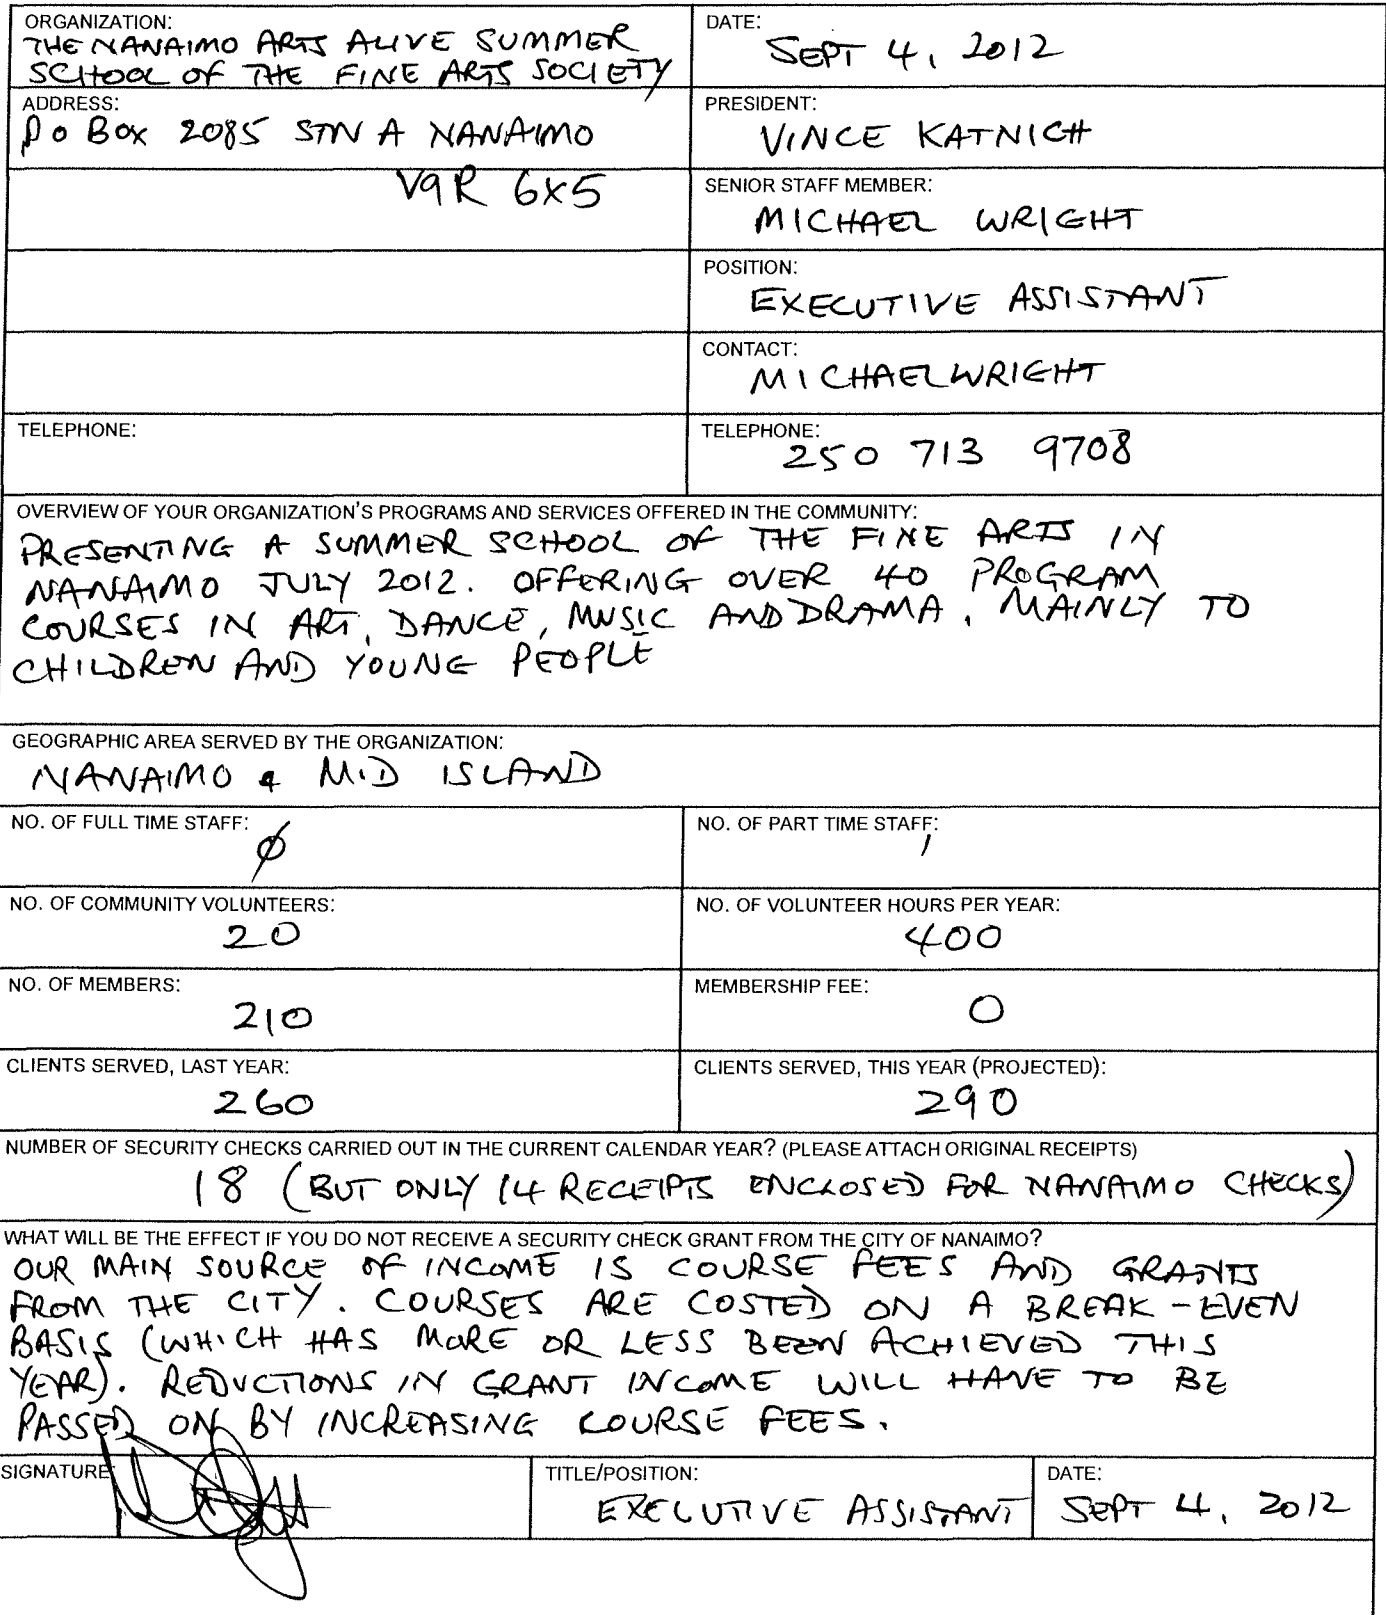 ORGANIZATION:
THE NANAIMO ARTS ALIVE SUMMER
SCHOOL OF THE FINE ARTS SOCIETY
DATE:
SEPT 4, 2012
ADDRESS:
PO BOX 2085 STN A NANAIMO
V9R 6X5
PRESIDENT:
VINCE KATNICH
SENIOR STAFF MEMBER:
MICHAEL WRIGHT
POSITION:
EXECUTIVE ASSISTANT
CONTACT:
MICHAEL WRIGHT
TELEPHONE:
TELEPHONE:
250 713 9708
OVERVIEW OF YOUR ORGANIZATION'S PROGRAMS AND SERVICES OFFERED IN THE COMMUNITY:
PRESENTING A SUMMER SCHOOL OF THE FINE ARTS IN
NANAIMO JULY 2012. OFFERING OVER 40 PROGRAM
COURSES IN ART, DANCE, MUSIC AND DRAMA, MAINLY TO
CHILDREN AND YOUNG PEOPLE
GEOGRAPHIC AREA SERVED BY THE ORGANIZATION:
NANAIMO & MID ISLAND
NO. OF FULL TIME STAFF:
0
NO. OF PART TIME STAFF:
1
NO. OF COMMUNITY VOLUNTEERS:
20
NO. OF VOLUNTEER HOURS PER YEAR:
400
NO. OF MEMBERS:
210
MEMBERSHIP FEE:
0
CLIENTS SERVED, LAST YEAR:
260
CLIENTS SERVED, THIS YEAR (PROJECTED):
290
NUMBER OF SECURITY CHECKS CARRIED OUT IN THE CURRENT CALENDAR YEAR? (PLEASE ATTACH ORIGINAL RECEIPTS)
18 (BUT ONLY 14 RECEIPTS ENCLOSED FOR NANAIMO CHECKS)
WHAT WILL BE THE EFFECT IF YOU DO NOT RECEIVE A SECURITY CHECK GRANT FROM THE CITY OF NANAIMO?
OUR MAIN SOURCE OF INCOME IS COURSE FEES AND GRANTS
FROM THE CITY. COURSES ARE COSTED ON A BREAK-EVEN
BASIS (WHICH HAS MORE OR LESS BEEN ACHIEVED THIS
YEAR). REDUCTIONS IN GRANT INCOME WILL HAVE TO BE
PASSED ON BY INCREASING COURSE FEES.
SIGNATURE:
TITLE/POSITION:
EXECUTIVE ASSISTANT
DATE:
SEPT 4, 2012